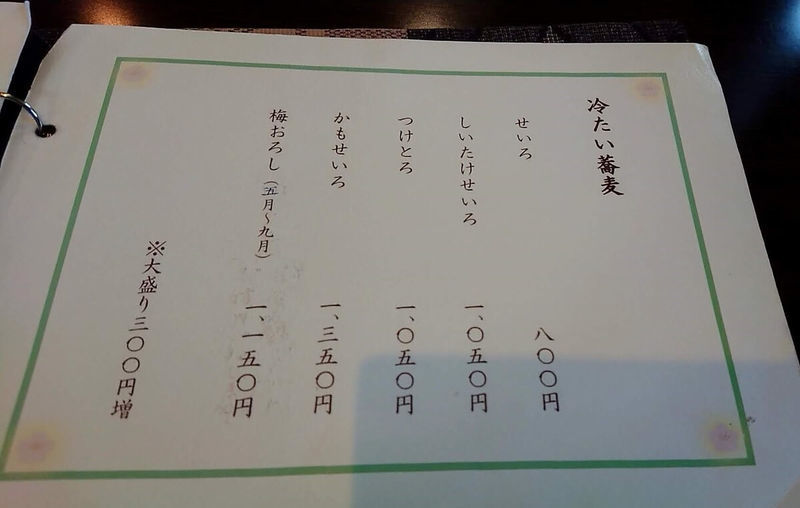 冷たい蕎麦
せいろ 八〇〇円
しいたけせいろ 一、〇五〇円
つけとろ 一、〇五〇円
かもせいろ 一、三五〇円
梅おろし（五月～九月） 一、一五〇円
※大盛り三〇〇円増